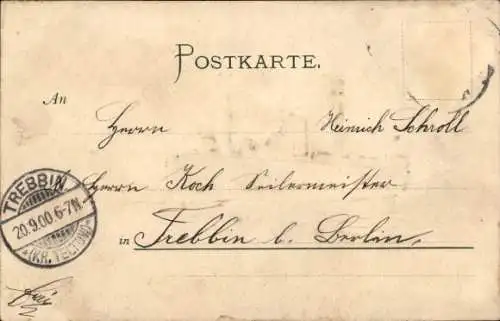 POSTKARTE.
An
Herrn Heinrich Schroll
Herrn Koch Seilermeister
in Trebbin b. Berlin.
TREBBIN
20.9.00.6-7N.
*(KR. TELTOW)
frei